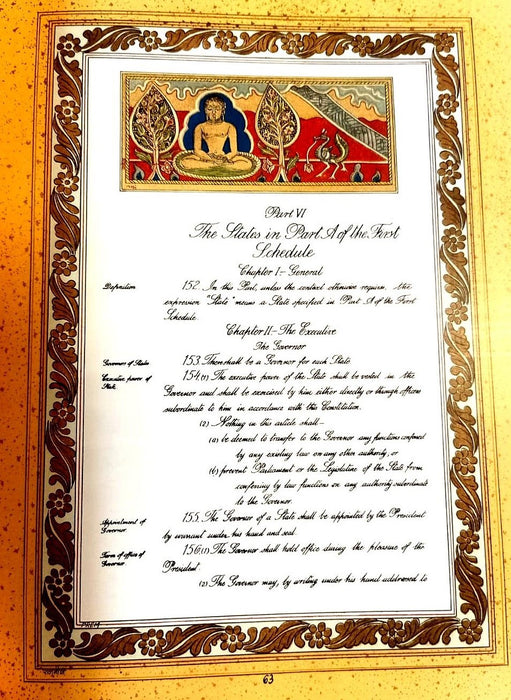 Part VI
The States in Part A of the First
Schedule
Chapter I — General
Definition 152. In this Part, unless the context otherwise requires, the
expression "State" means a State specified in Part A of the First
Schedule.
Chapter II — The Executive
The Governor
Governors of States 153. There shall be a Governor for each State.
Executive power of State. 154. (1) The executive power of the State shall be vested in the
Governor and shall be exercised by him either directly or through officers
subordinate to him in accordance with this Constitution.
(2) Nothing in this article shall—
(a) be deemed to transfer to the Governor any functions conferred
by any existing law on any other authority, or
(b) prevent Parliament or the Legislature of the State from
conferring by law functions on any authority subordinate
to the Governor.
Appointment of Governor 155. The Governor of a State shall be appointed by the President
by warrant under his hand and seal.
Term of office of Governor 156. (1) The Governor shall hold office during the pleasure of the
President.
(2) The Governor may, by writing under his hand addressed to
PREM
63